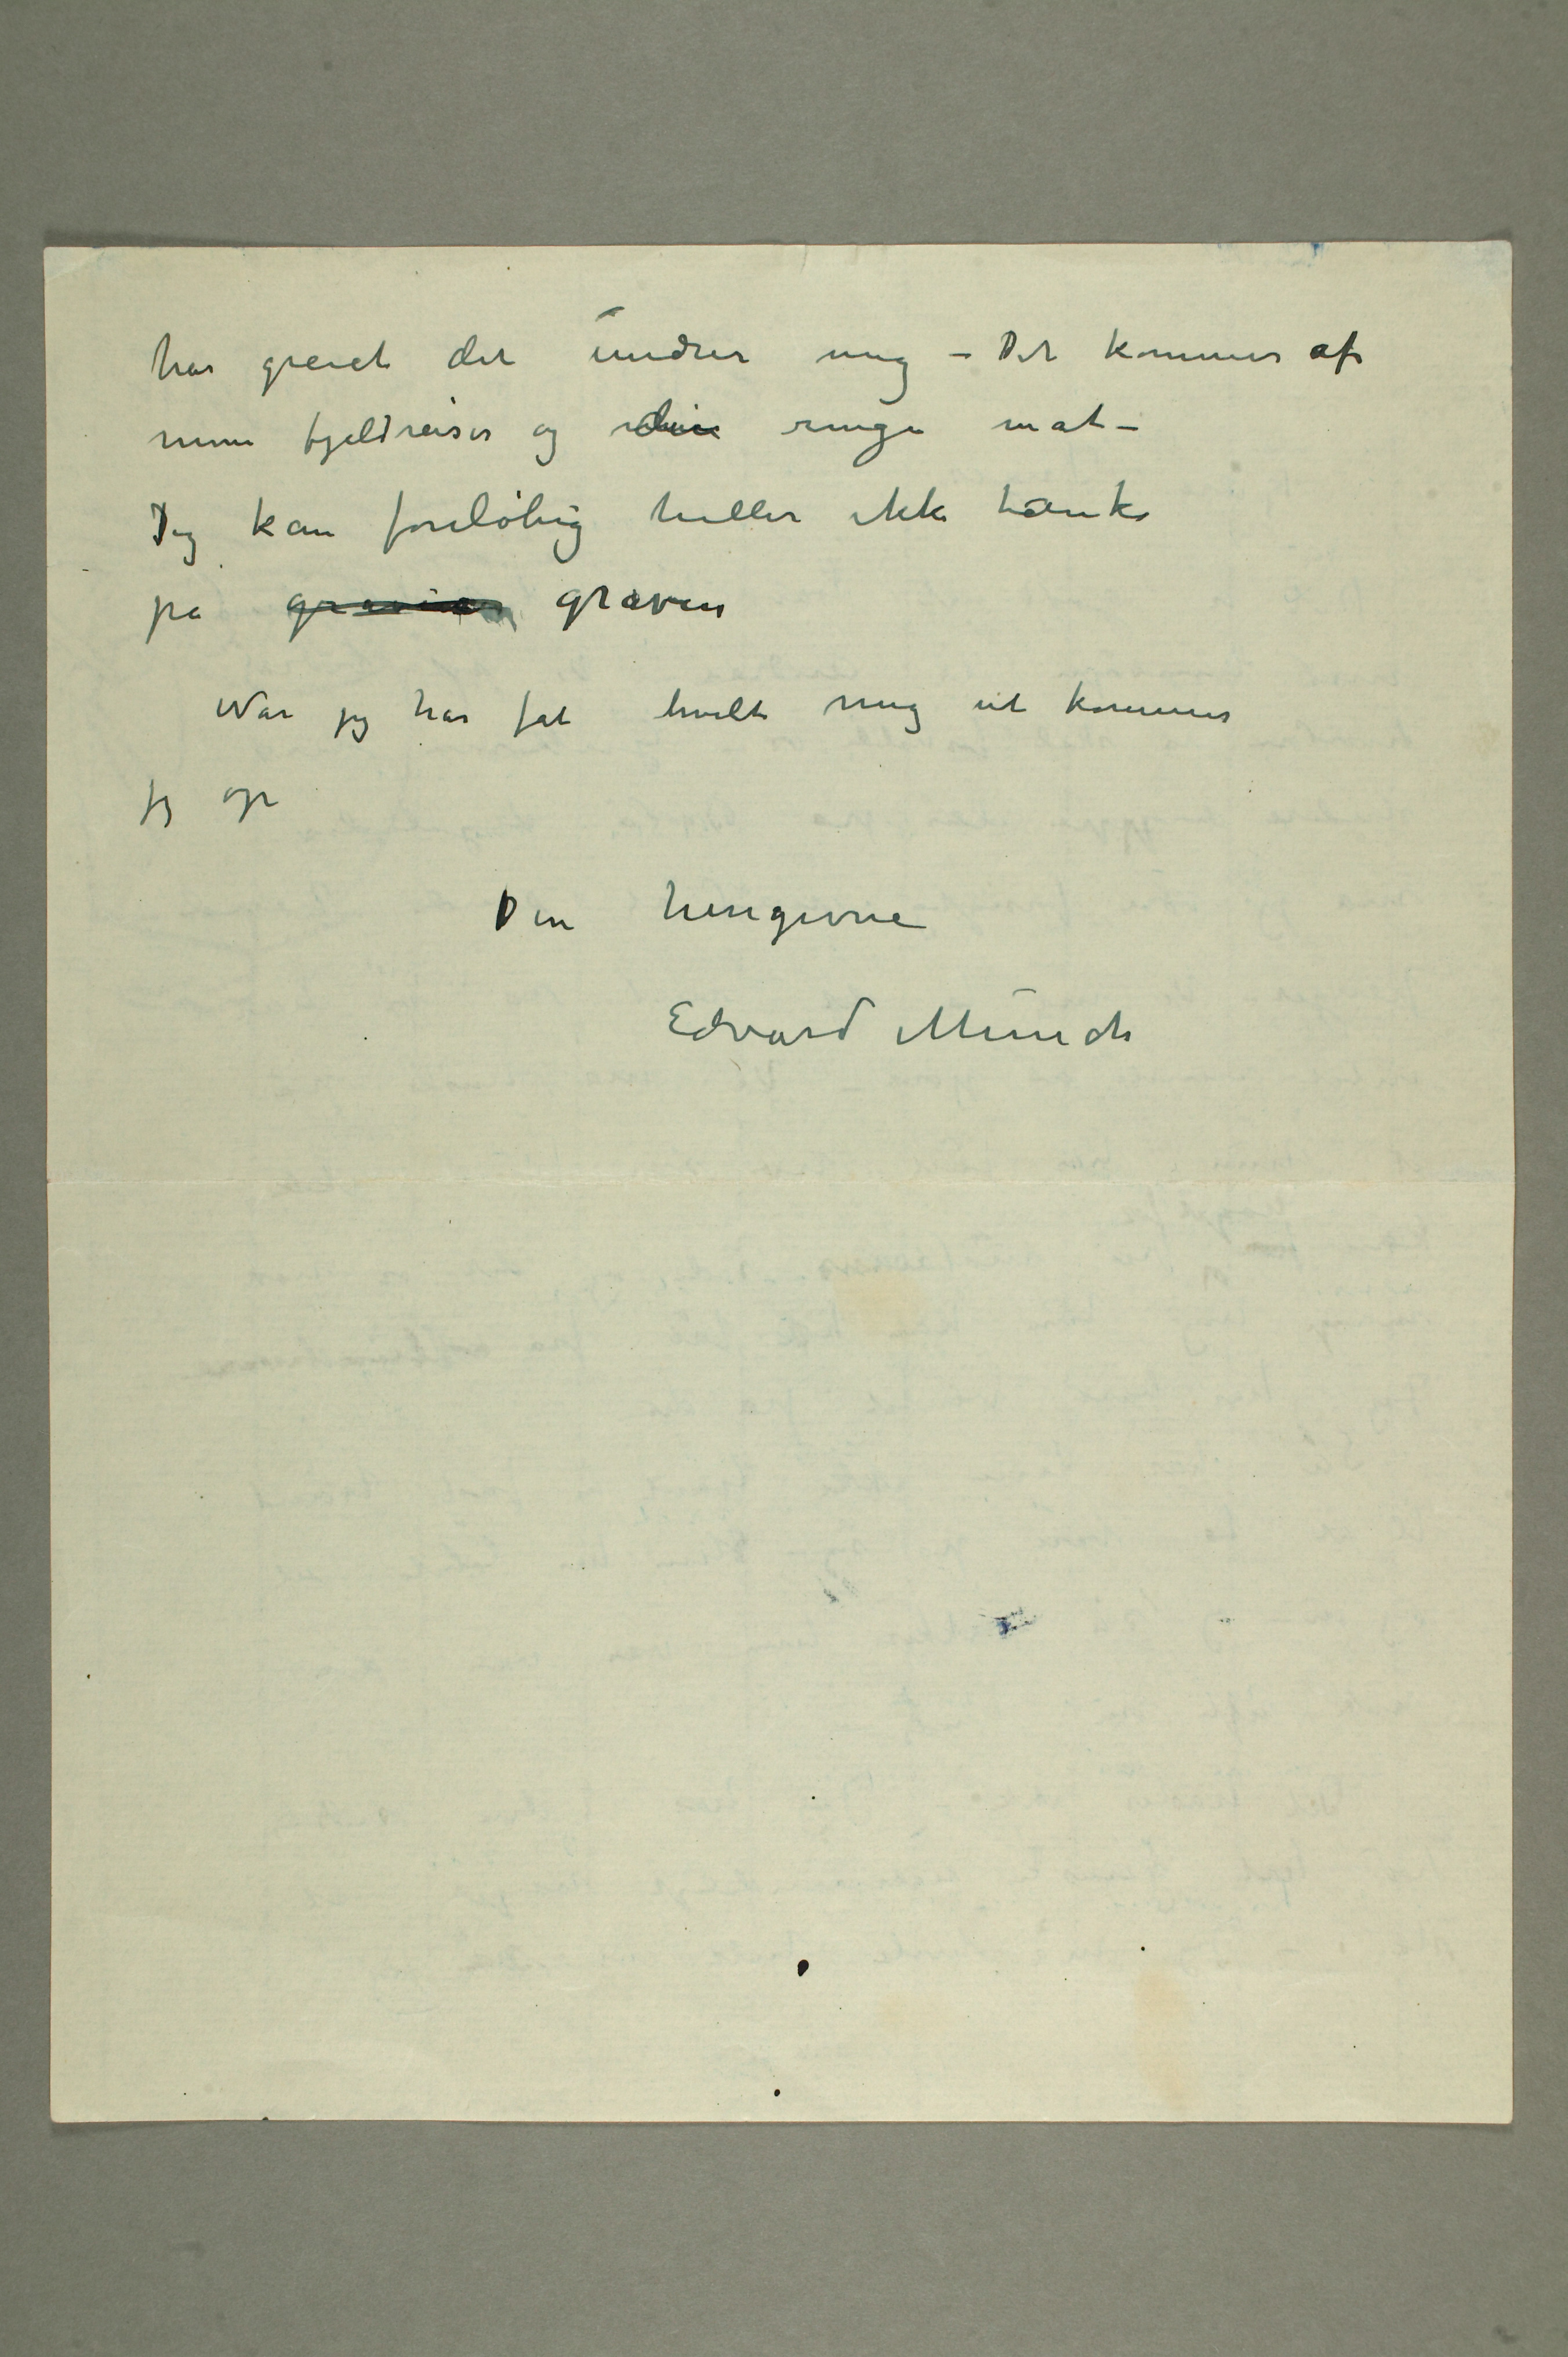 har greiet det undrer mig – Det kommer af
mine fjeldreiser og ringe mat –
Jeg kan foreløbig heller ikke tænke
på graven
Når jeg har fåt hvilt mig ut kommer
jeg op
Din hengivne
Edvard Munch